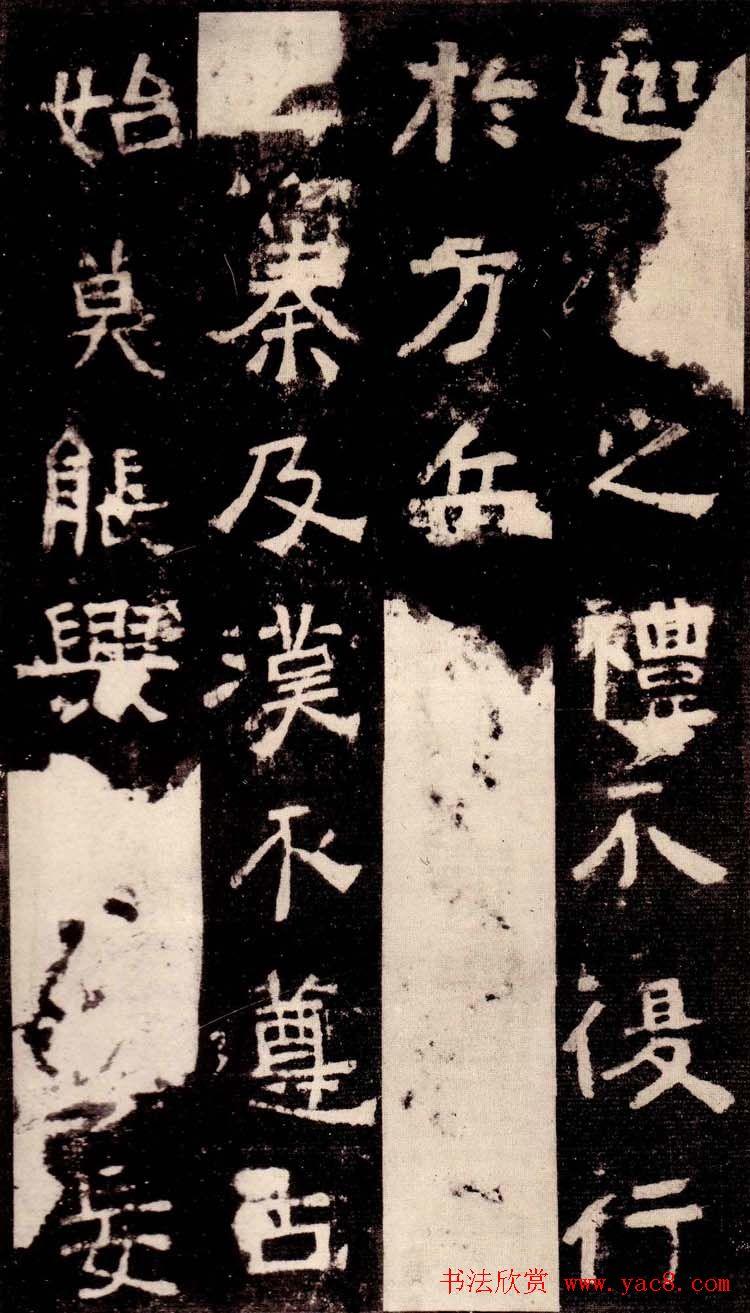 巡之禮不復行
於方岳
秦及漢不尊古
始莫能興妄
书法欣赏 www.yac8.com